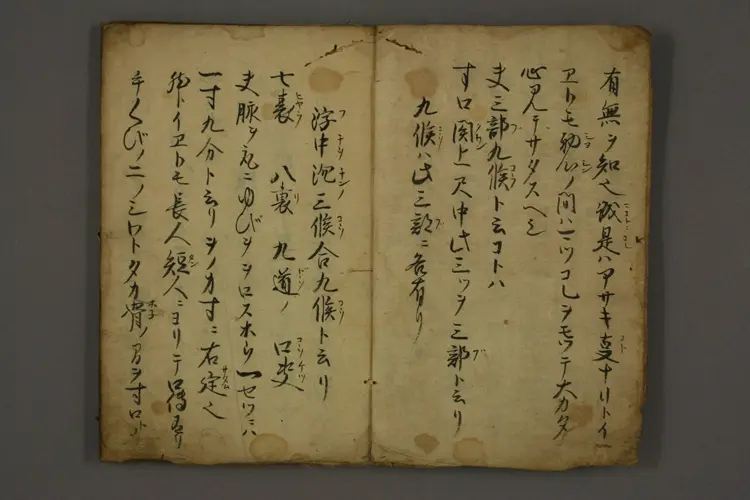 有無ヲ知也誠是ハアサキ叓ナリトイ
ヱトモ幼心ノ間ハ一ツコレヲモツテ大カタ
心見テサタスヘシ
夫三部九候ト云コトハ
寸口関上尺中此三ツヲ三部ト云リ
九候ハ此三部ニ各有リ
浮中沉三候合九候ト云リ
七表 八裏 九道ノ 口決
夫脉ヲ取ニゆびヲヲロス 一セツニハ
一寸九分ト云リ 寸ニ右定也
トイヱトモ長人短人ニヨリテ口傳有リ
手くびノ二ノシロトタカ骨ノ 寸口ト